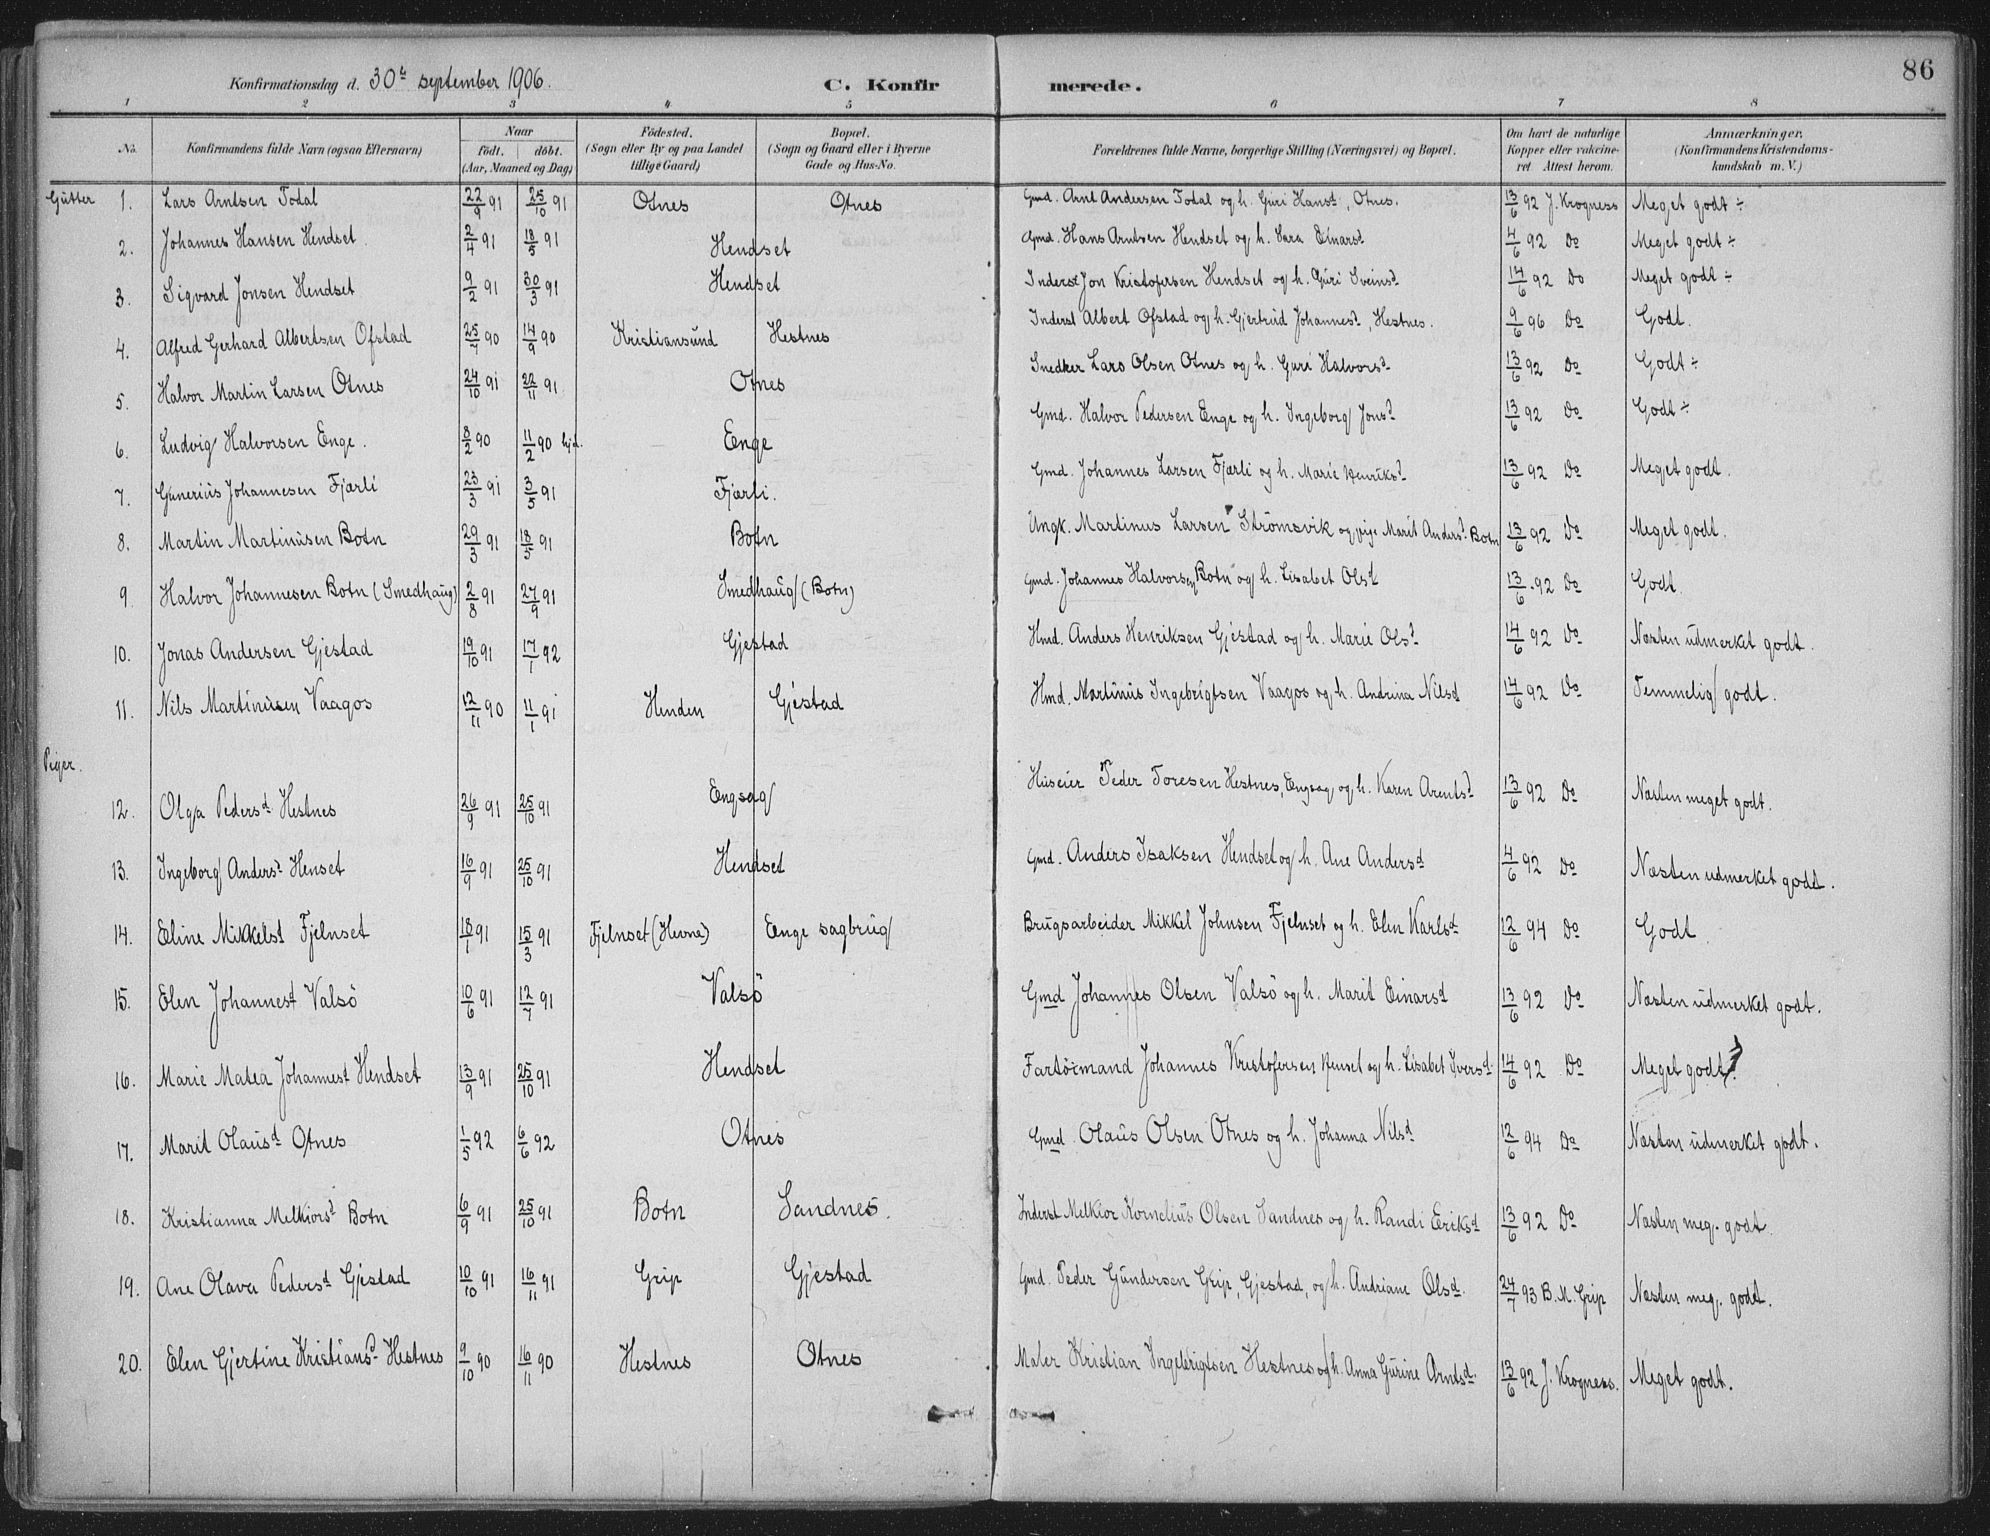 86
Konfirmationsdag d. 30te september 1906. C. Konfirmerede.
1 2 3 4 5 6 7 8
No. Konfirmandens fulde Navn (ogsaa Efternavn) Naar født. døbt. (Aar, Maaned og Dag) Fødested. (Sogn eller By og paa Landet tillige Gaard) Bopæl. (Sogn og Gaard eller i Byerne Gade og Hus-No. Forældrenes fulde Navne, borgerlige Stilling (Næringsvei) og Bopæl. Om havt de naturlige Kopper eller vakcineret Attest herom. Anmærkninger. (Konfirmandens Kristendomskundskab m. V.)
Gutter 1. Lars Arntsen Todal 22/9 91 25/10 91 Otnes Otnes Gmd. Arnt Andersen Todal og h. Guri Hansd, Otnes. 13/6 92 J. Krogness Meget godt ÷
2. Johannes Hansen Hendset. 2/4 91 18/5 91 Hendset Gmd. Hans Arntsen Hendset og h. Sara Einarsd 4/6 92 Do Meget godt ÷
3. Sigvard Jonsen Hendset 9/2 91 30/3 91 Hendset Inderst Jon Kristofersen Hendset og h. Guri Sveinsd 14/6 92 Do Meget godt ÷
4. Alfred Gerhard Albertsen Ofstad 25/7 90 14/9 90 Kristiansund Hestnes Inderst Albert Ofstad og h. Gjertrud Johannesd, Hestnes. 9/6 96 Do Godt.
5. Halvor Martin Larsen Otnes 24/10 91 22/11 91 Otnes Snedker Lars Olsen Otnes og h. Guri Halvorsd 13/6 92 Do Godt ÷
6. Ludvig Halvorsen Enge. 8/2 90 11/2 90 hjd. Enge Gmd. Halvor Pedersen Enge og h. Ingeborg Jonsd 13/6 92 Do Godt ÷
7. Gunerius Johannesen Fjærli 23/3 91 3/5 91 Fjærli. Gmd. Johannes Larsen Fjærli og h. Marie Henriksd 13/6 92 Do Meget godt.
8. Martin Martinusen Botn 29/3 91 18/5 91 Botn Ungk. Martinus Larsen Strömsvik og pige Marit Andersd Botn 13/6 92 Do Meget godt.
9. Halvor Johannesen Botn (Smedhaug) 2/8 91 27/9 91 Smedhaug (Botn) Gmd. Johannes Halvorsen Botn og h. Lisabet Olsd 13/6 92 Do Godt.
10. Jonas Andersen Gjestad 19/10 91 17/1 92 Gjestad Hmd. Anders Henriksen Gjestad og h. Marie Olsd 14/6 92 Do Næsten udmerket godt.
11. Nils Martinusen Vaagos 12/11 90 11/1 91 Henden Gjestad Hmd. Martinus Ingebrigtsen Vaagos og h. Andrina Nilsd 14/6 92 Do Temmelig godt.
Piger.
12. Olga Pedersd Hestnes 26/9 91 25/10 91 Engsag Huseier Peder Toresen Hestnes, Engsag og h. Karen Arentsd 13/6 92 Do Næsten meget godt.
13. Ingeborg Andersd Henset 16/9 91 25/10 91 Hendset Gmd. Anders Isaksen Hendset og h. Ane Andersd 4/6 92 Do Næsten udmerket godt.
14. Eline Mikkelsd Fjelnset 18/1 91 15/3 91 Fjelnset (Hevne) Enge sagbrug Brugsarbeider Mikkel Johnsen Fjelnset og h. Elen Karlsd 12/6 94 Do Godt.
15. Elen Johannesd Valsö 10/6 91 12/7 91 Valsö Gmd Johannes Olsen Valsö og h. Marit Einarsd 13/6 92 Do Næsten udmerket godt.
16. Marie Matea Johannesd Hendset 13/9 91 25/10 91 Hendset Fartöimand Johannes Kristofersen Henset og h. Lisabet Iversd. 14/6 92 Do Meget godt.
17. Marit Olausd Otnes 1/5 92 6/6 92 Otnes Gmd. Olaus Olsen Otnes og h. Johanna Nilsd 12/6 94 Do Næsten udmerket godt.
18. Kristianna Melkiorsd Botn 6/9 91 25/10 91 Botn Sandnes. Inderst Melkior Kornelius Olsen Sandnes og h. Randi Eriksd 13/6 92 Do Næsten meg. godt
19. Ane Olava Pedersd Gjestad 10/10 91 16/11 91 Grip Gjestad Gmd. Peder Gundersen Grip, Gjestad, og h. Andriane Olsd. 24/7 93 B. M. Grip Næsten meg. godt.
20. Elen Gjertine Kristiansd Hestnes 9/10 90 16/11 90 Hestnes Otnes Maler Kristian Ingebrigtsen Hestnes og h. Anna Gurine Arntsd. 13/6 92 J. Krogness. Meget godt.